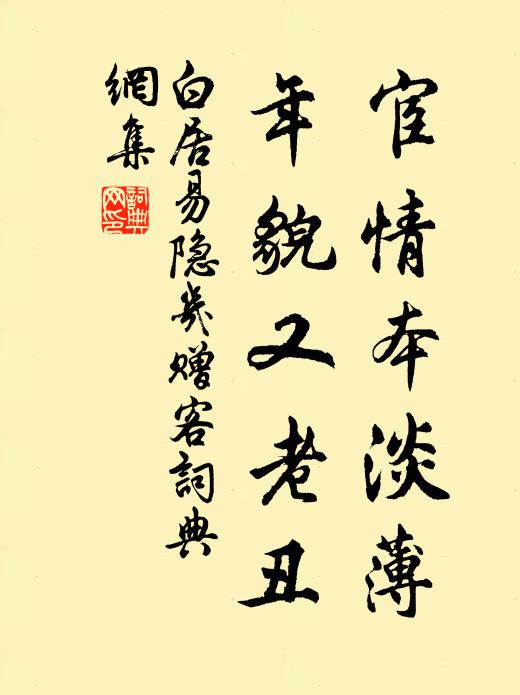 宦情本淡薄
年貌又老丑
白居易隐几赠客詞典
網集
詞典網印